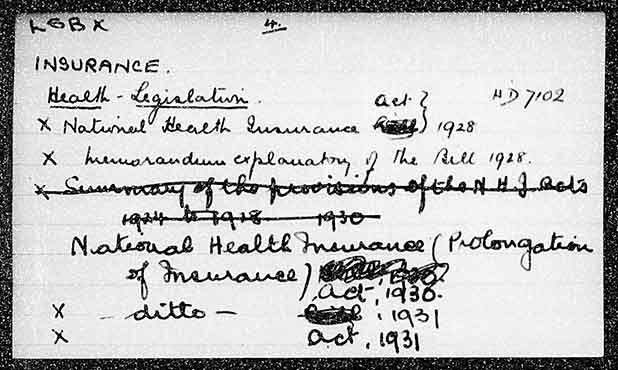 LGB X 4.
INSURANCE.
Health - Legislation. HD 7102
Act }
X National Health Insurance } 1928
X Memorandum explanatory of the Bill 1928.
X Summary of the provisions of the N H I Acts
1924 to 1928 1930
National Health Insurance (Prolongation
of Insurance)
Act, 1930.
X - ditto - , 1931
X Act, 1931